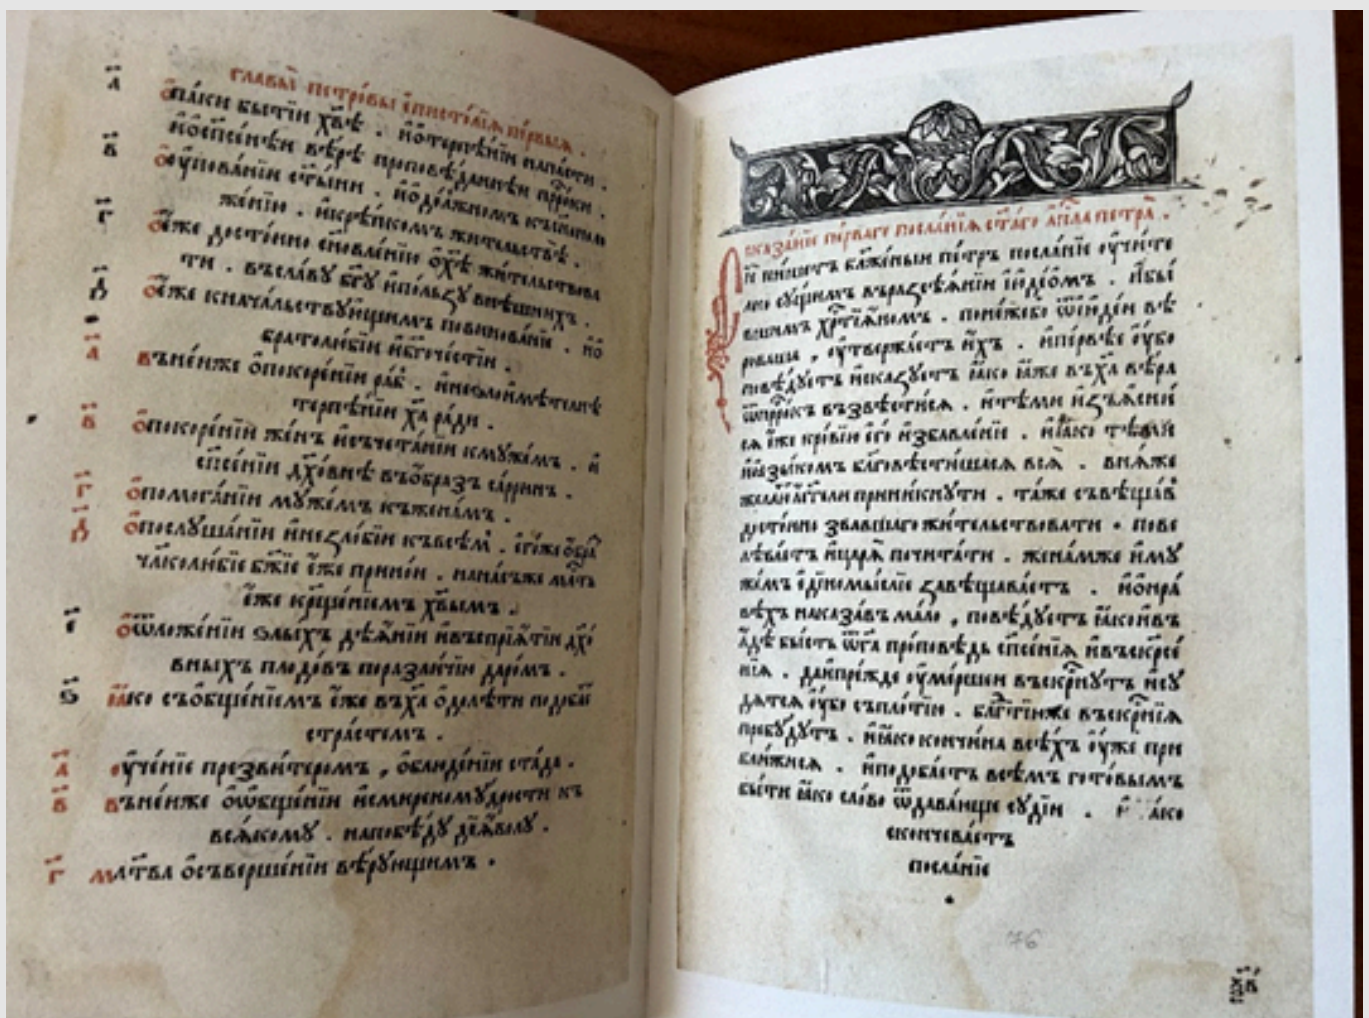 главы петровы епистолїѧ пе́рвыѧ .
а҃ ѡпаки бытїи хв҃ѣ . и҆ѡтерпѣ́нїи напасти .
и҆ѡсп҃се́нѣи вѣ́рѣ проповѣ́даннѣи прⷪ҇ро́ки .
в҃ ѡу҆пова́нїи ст҃ы́ни .
же́нїю . и҆крѣ́пкомъ жи́тельствѣ .
г҃ ѡе҆́же досто́йно
ти . въсла́ву бг҃у и҆по́льзу внѣ́шнихъ .
д҃ ѡе҆́же кнача́льствꙋющимъ повинова́нїе . и҆ѡ
братолю́бїи и҆бл҃гоче́стїи .
а҃ въне́йже ѡ҆покоре́нїи ра́бъ .
терпѣ́нїи хⷭ҇а ра́ди .
в҃ ѡ҆покоре́нїи же́нъ и҆съчета́нїи кму́жемъ . и҆
сп҃се́нїи дх҃о́внѣ въѡ҆́бразъ са́ррин .
г҃ ѡ҆помога́нїи му́жемъ къжена́мъ .
д҃ ѡ҆послꙋша́нїи и҆неѕло́бїи къвсѣ́мъ .
чл҃колю́бїе бж҃їе е҆́же прино́и . нана́съже
е҆́же крⷭ҇ще́нїемъ хв҃ымъ .
е҃ ѡ҆ѿложе́нїи ѕлы́хъ дѣѧ́нїи и҆въспрїѧ́тїи дх҃о́
вныхъ плодо́въ поразли́чїю даро́мъ .
ѕ҃ ꙗ҆́ко съѡ҆бще́нїемъ е҆́же въхⷭ҇а ѡ҆долѣ́ти подоба́е
стра́стемъ .
а҃ ѹ҆че́нїе презви́теромъ , ѡ҆блюде́нїи ста́да .
в҃ въне́йже ѡ҆ѡ҆бще́нїи и҆смиреному́дрости къ
всѧ́кому . напобѣ́ду дїѧ́волу .
г҃ мл҃тва ѡ҆съверше́нїи вѣ́рующимъ .
сказа́нїе пе́рваго посла́нїѧ ст҃а́го а҆пⷭ҇ла петра̀ .
Сїѝ пи́шетъ бл҃же́ныи пе́тръ посла́нїе ѹ҆чи́те
лно су́щимъ вѣразсѣ́ѧнїи і҆ꙋде́ѡмъ . и҆бы́
вшимъ хрⷭ҇тїѧ́номъ . поне́жебо ѿїюде́и вѣ́
роваша , ѹ҆твержа́етъ и҆́хъ . и҆пе́рвѣе ѹ҆́бо
повѣ́дуетъ и҆ска́зуетъ ꙗ҆́ко ꙗ҆́же въхⷭ҇а вѣ́ра
ѿпрⷪ҇ро́къ възвѣсти́сѧ . и҆тѣ́ми и҆з̾ѧсни́
сѧ е҆́же кро́вїю е҆го̀ и҆збавле́нїе . и҆ꙗ҆́ко тѣ́ми
и҆ꙗ҆зы́комъ бл҃говѣсти́шасѧ всѧ̀ . внѧ́же
жела́ют а҆́гг҃ели прини́кнути . та́же съвѣща́въ
досто́йно зва́вшаго жи́тельствовати . пове
лѣва́етъ и҆царѧ̀ почита́ти . жена́мже и҆му
же́мъ е҆диномы́слїе завѣщава́етъ . и҆ѡ҆нра́
вѣхъ наказа́въ ма́ло , повѣ́дуетъ ꙗ҆́кои҆въ
а҆́дѣ бы́сть ѿгⷭ҇а про́повѣдь сп҃се́нїѧ и҆въскрⷭ҇е́
нїѧ . даи҆пре́жде ѹ҆ме́ршеи въскрⷭ҇нутъ и҆су
дѧтсѧ ѹ҆́бо съпло́тїю . бл҃года́тїюже въскрⷭ҇нїѧ
пребу́дутъ . и҆ꙗ҆́ко кончи́на всѣ́хъ ѹ҆́же при
бли́жисѧ . и҆подоба́етъ всѣ́мъ гото́вымъ
бы́ти ꙗ҆́ко сло́во ѿдава́юще судїи́ . ꙗ҆́ко
сконче́ваетъ
посла́нїе
76